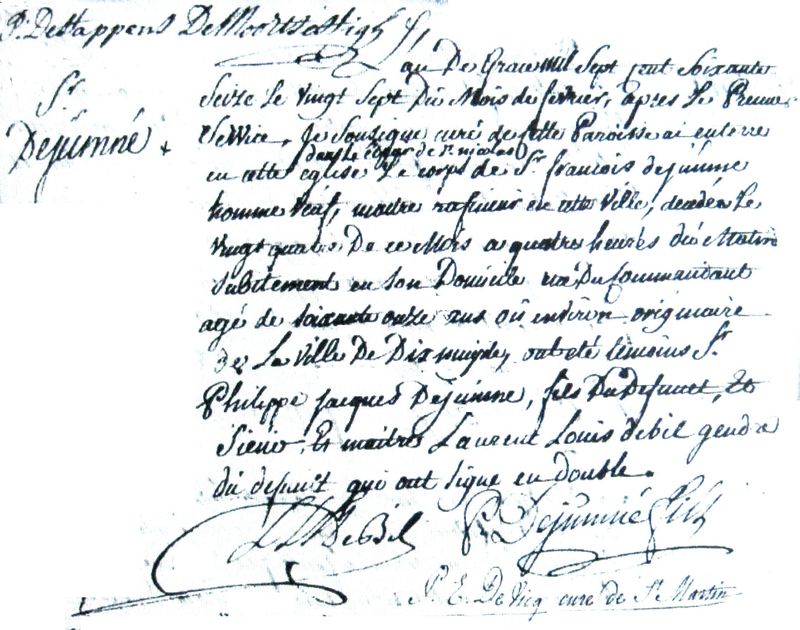 P. DeHappens DeMooritatigh
Sr.
Dejumné
au De Grace mil Sept cent Soixante
Seize Le vingt Sept Du Mois de fevrier, apres Le Premier
Service, Je Sousigne curé de cette Paroisse ai enterre
dans Le chœur de St. nicolas
en cette eglise Le corps de Sr. francois dejumne
homme veuf, maitre rafineur en cette Ville, decedée Le
vingt quatre De ce Mois a quatre heures du Matin
Subitement en Son Domicile rue Du Commandant
agé de Soixante onze ans ou environ originaire
de La Ville De Dixmuyde, ont eté temoins Sr.
Philippe Jacques Dejumne, fils Du Defunct, Et
Sieur Et maitre Laurent Louis debil gendre
du defunt qui ont Signe en double.
L L DeBil Ph Dejumné fils
P. E. De Vicq curé de St. Martin